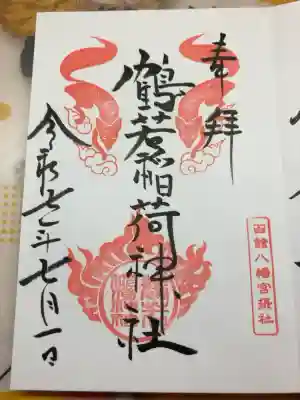 奉拝
函館八幡宮摂社
鶴若稲荷神社
令和七年七月一日